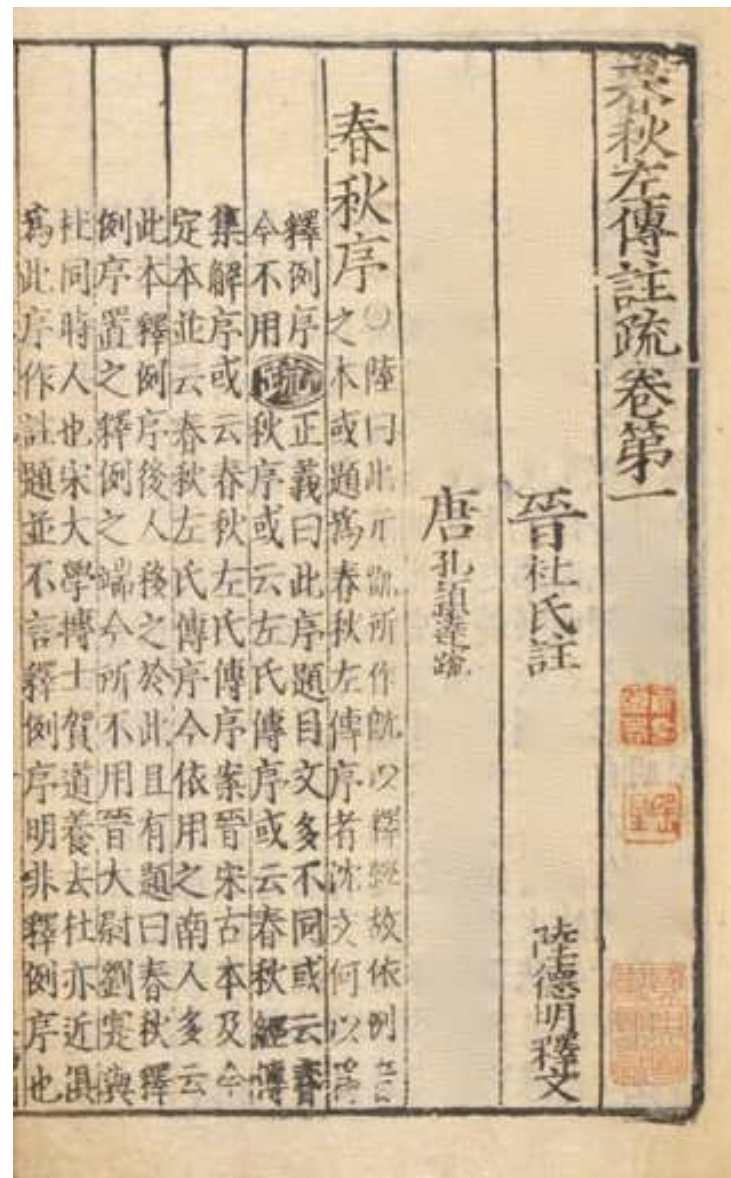 春秋左傳註疏卷第一
晉杜氏註
陸德明釋文
唐孔穎達疏
春秋序
陸曰此元凱所作既以釋經故依例
之本或題爲春秋左傳序者沈文何以
釋例序
今不用
疏
正義曰此序題目文多不同或云春
秋序或云左氏傳序或云春秋經傳
集解序或云春秋左氏傳序案晉宋古本及今
定本並云春秋左氏傳序今依用之南人多云
此本釋例序後人移之於此且有題曰春秋釋
例序置之釋例之端今所不用晉大尉劉寔與
杜同時人也宋大學博士賀道養去杜亦近俱
爲此序作註題並不言釋例序明非釋例序也